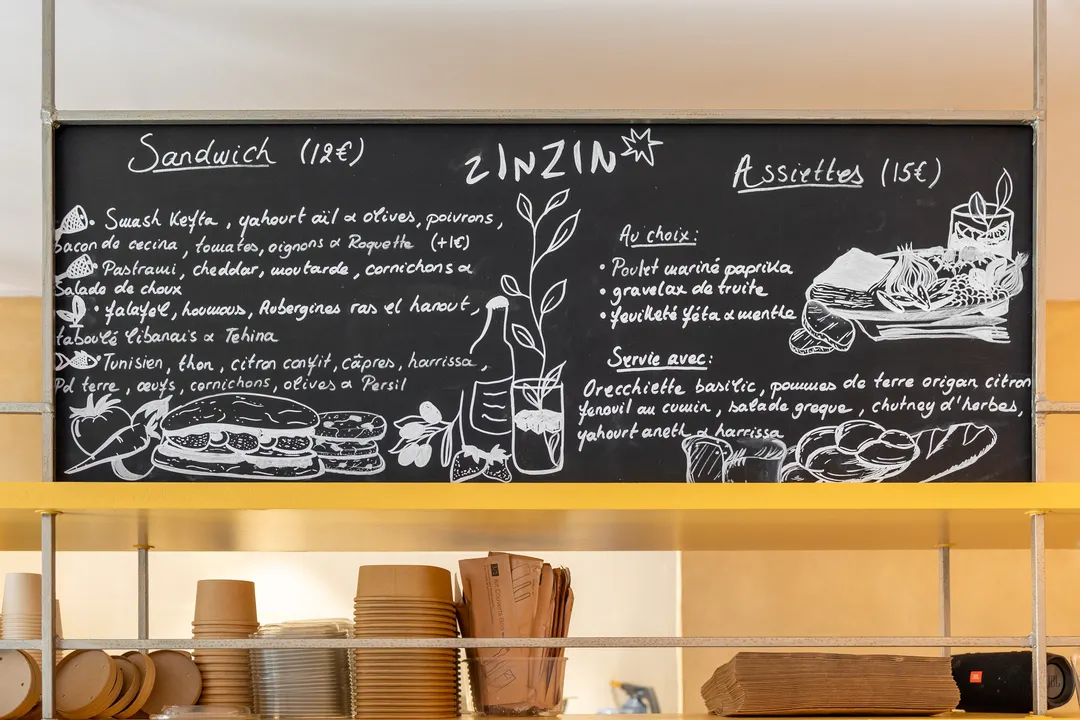 Sandwich (12€)
Smash Kefta, yahourt aïl & olives, poivrons,
bacon de cecina, tomates, oignons & Roquette (+1€)
Pastrami, cheddar, moutarde, cornichons &
Salade de choux
• falafel, houmous, Aubergines ras el hanout,
taboulé libanais & Tehina
Tunisien, thon, citron confit, câpres, harrissa,
Pd terre, œufs, cornichons, olives & Persil
ZINZIN
Assiettes (15€)
Au choix:
• Poulet mariné paprika
• gravelax de truite
• feuilleté féta & menthe
Servie avec:
Orecchiette basilic, pommes de terre origan citron
fenouil au cumin, salade greque, chutney d'herbes,
yahourt aneth & harrissa
JBL